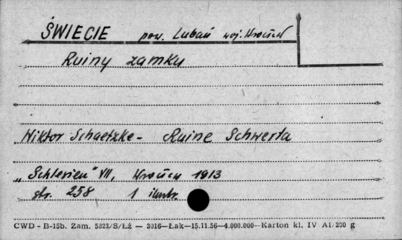 ŚWIECIE pow. Lubań woj. Wrocław
Ruiny zamku
Wiktor Schaetzke - Ruine Schwerta
„Schlesien" VII, Wrocław 1913
str. 258 1 ilustr.
CWD - B-15b. Zam. 5323/S/ŁŻ — 3016—Łak—15.11.56—4.000.000— Karton kl. IV A1/250 g